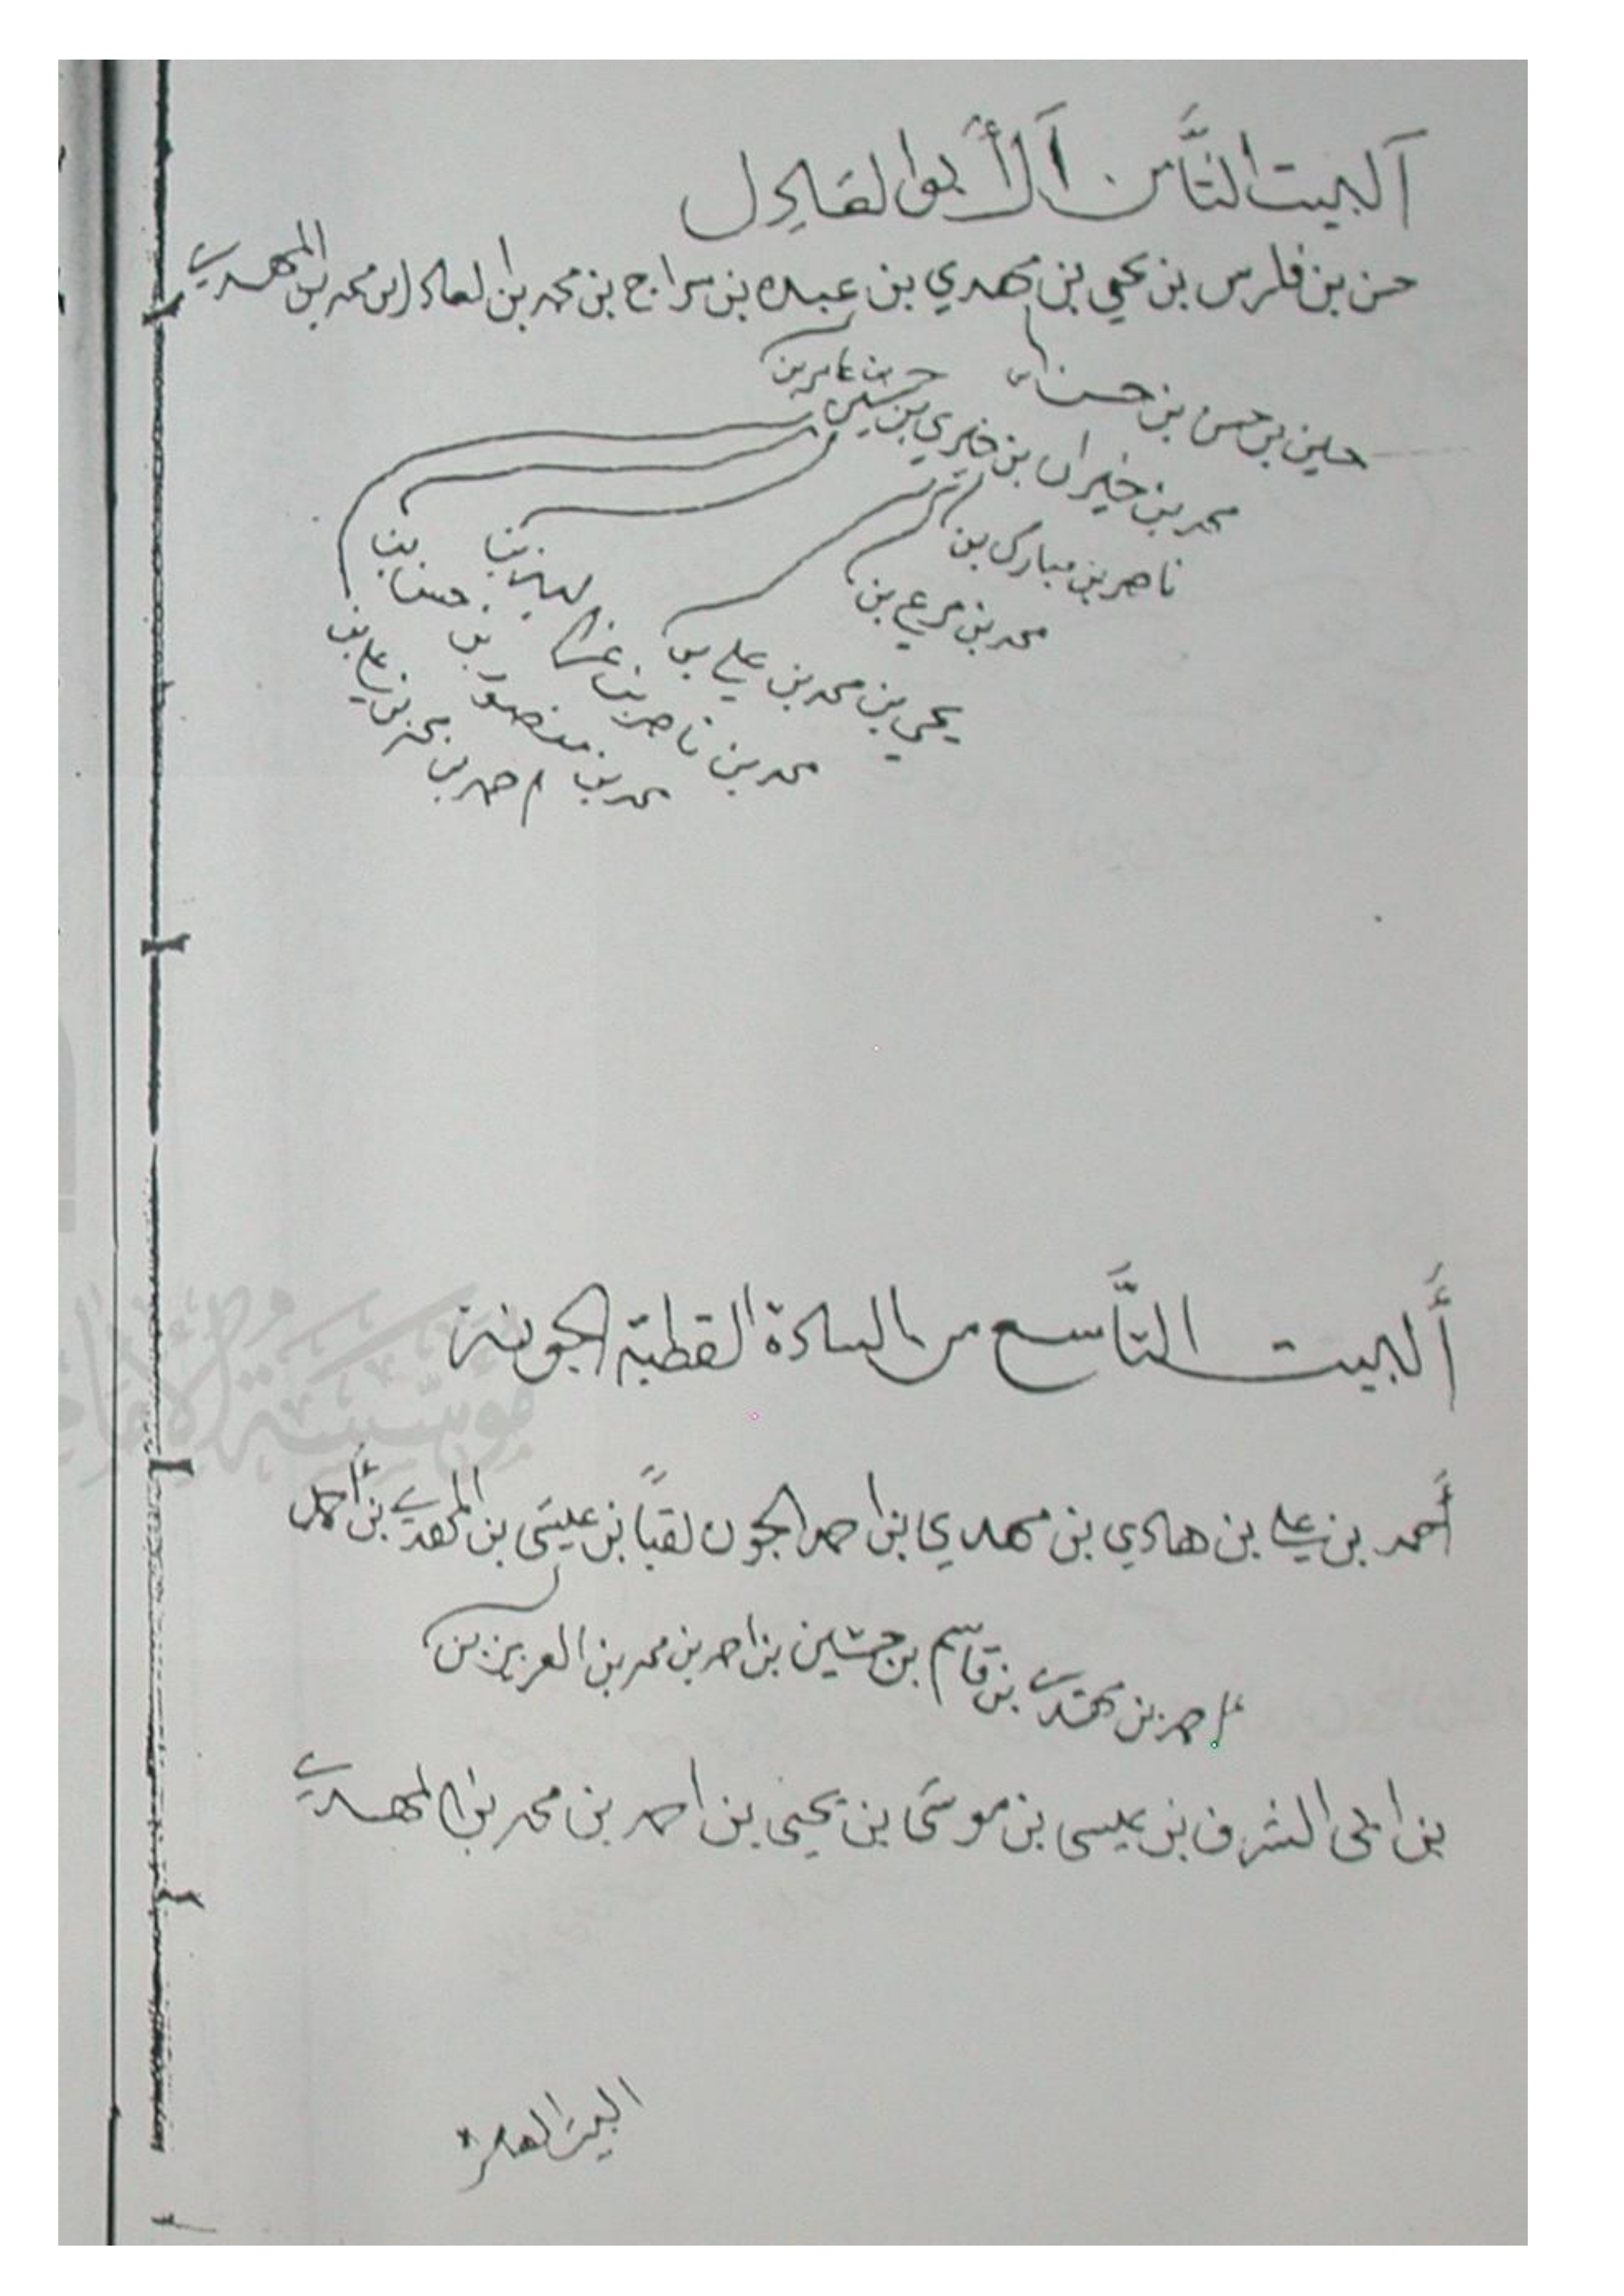 ألبيت الثَّامن آل أبو العادل
حسن بن فارس بن يحي بن مهدي بن عبده بن سراج بن محمد بن العادل بن محمد بن المهدي
حسين بن حسن بن حسن
حسين بن عامر بن
محمد بن خيران بن خيري بن حسين
ناصر بن مبارك بن
محمد بن مرعي بن
يحي بن محمد بن علي بن
محمد بن ناصر بن
محمد بن منصور بن حسن بن
احمد بن محمد بن علي بن
ألبيت التَّاسع من السادة القطبية الجونة
أحمد بن علي بن هادي بن مهدي بن احمد الجون لقبًا بن عيسى بن المهدي بن أحمد
احمد بن مهدي بن قاسم بن حسين بن احمد بن محمد بن العزيز بن
بن ابي الشرف بن عيسى بن موسى بن يحيى بن احمد بن محمد بن المهدي
البيت العاشر
مؤسسة الإمام